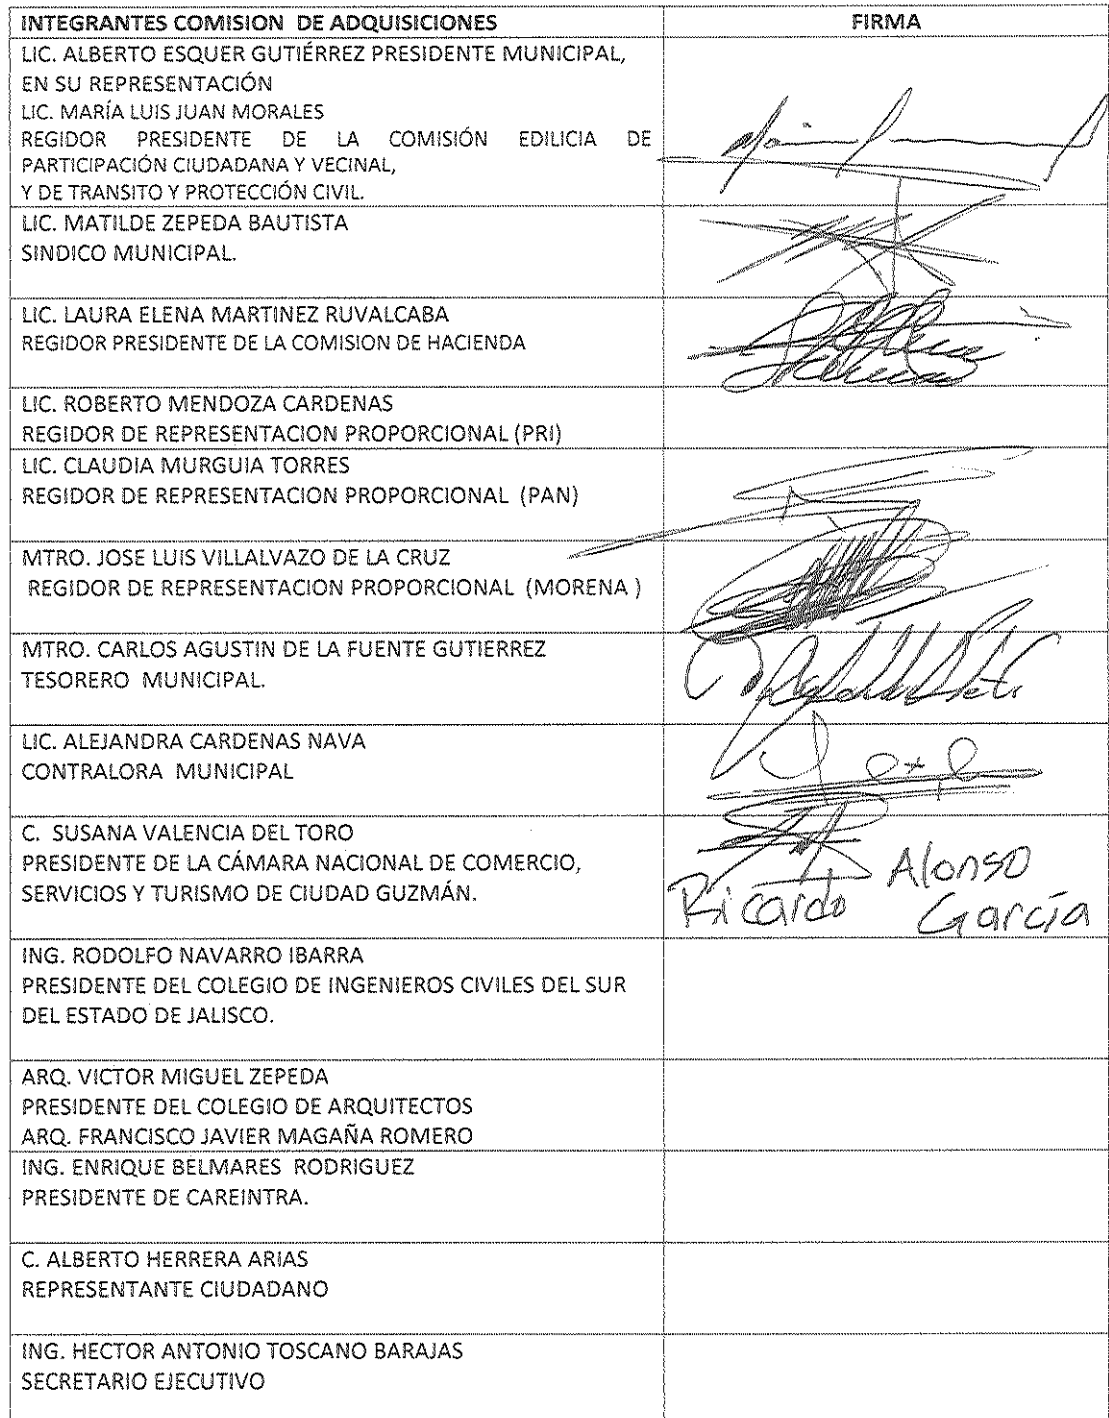 INTEGRANTES COMISION DE ADQUISICIONES FIRMA
LIC. ALBERTO ESQUER GUTIÉRREZ PRESIDENTE MUNICIPAL,
EN SU REPRESENTACIÓN
LIC. MARÍA LUIS JUAN MORALES
REGIDOR PRESIDENTE DE LA COMISIÓN EDILICIA DE
PARTICIPACIÓN CIUDADANA Y VECINAL,
Y DE TRANSITO Y PROTECCIÓN CIVIL.
LIC. MATILDE ZEPEDA BAUTISTA
SINDICO MUNICIPAL.
LIC. LAURA ELENA MARTINEZ RUVALCABA
REGIDOR PRESIDENTE DE LA COMISION DE HACIENDA
LIC. ROBERTO MENDOZA CARDENAS
REGIDOR DE REPRESENTACION PROPORCIONAL (PRI)
LIC. CLAUDIA MURGUIA TORRES
REGIDOR DE REPRESENTACION PROPORCIONAL (PAN)
MTRO. JOSE LUIS VILLALVAZO DE LA CRUZ
REGIDOR DE REPRESENTACION PROPORCIONAL (MORENA )
MTRO. CARLOS AGUSTIN DE LA FUENTE GUTIERREZ
TESORERO MUNICIPAL.
LIC. ALEJANDRA CARDENAS NAVA
CONTRALORA MUNICIPAL
C. SUSANA VALENCIA DEL TORO
PRESIDENTE DE LA CÁMARA NACIONAL DE COMERCIO,
SERVICIOS Y TURISMO DE CIUDAD GUZMÁN.
Ricardo Alonso
García
ING. RODOLFO NAVARRO IBARRA
PRESIDENTE DEL COLEGIO DE INGENIEROS CIVILES DEL SUR
DEL ESTADO DE JALISCO.
ARQ. VICTOR MIGUEL ZEPEDA
PRESIDENTE DEL COLEGIO DE ARQUITECTOS
ARQ. FRANCISCO JAVIER MAGAÑA ROMERO
ING. ENRIQUE BELMARES RODRIGUEZ
PRESIDENTE DE CAREINTRA.
C. ALBERTO HERRERA ARIAS
REPRESENTANTE CIUDADANO
ING. HECTOR ANTONIO TOSCANO BARAJAS
SECRETARIO EJECUTIVO